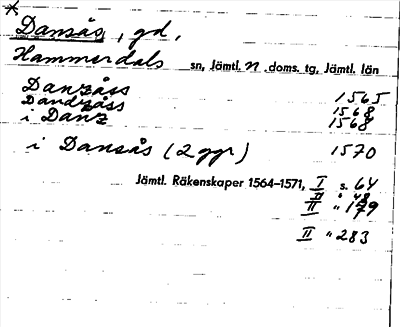 Dansås, gd,
Hammerdals sn, Jämtl. n. doms. tg, Jämtl. län
Danzåss 1565
Dandzåss 1568
i Danz 1568
i Dansås (2 ggr) 1570
Jämtl. Räkenskaper 1564–1571, I s. 64
II " 48
II " 179
II " 283